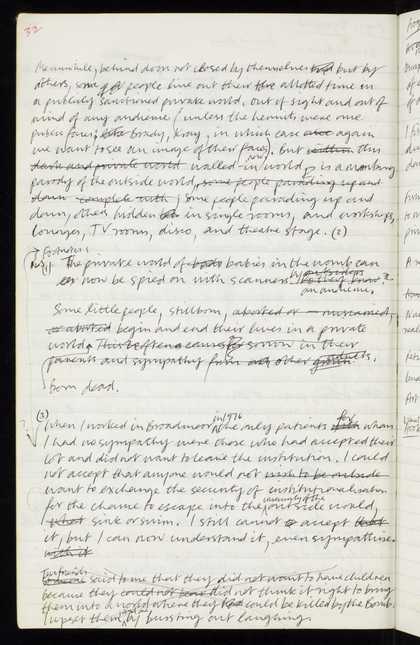 32
Meanwhile, behind doors not closed by themselves but by
others, some people live out their allotted time in
a publicly sanctioned private world, out of sight and out of
mind of any audience (unless the hermits were once
faces, Brady, Kray, in which case again
we want to see an image of their faces). But within this
dark and private world walled-in world, is a
parody of the outside world, some people parading up and
down complete with; some people parading up and
down, others hidden in single rooms, and workshops,
lounges, TV rooms, disco, and theatre stage. (2)
Footnotes
(1) The private world of babies in the womb can
now be spied on with scanners by outsiders
an audience.
Some little people, stillborn, aborted or miscarried,
or aborted begin and end their lives in a private
world. This often causes sorrow in their
parents and sympathy from other
Born dead.
(2)
When I worked in Broadmoor in 1976 the only patients for whom
I had no sympathy were those who had accepted their
lot and did not want to leave the institution. I could
not accept that anyone would not wish to be outside
want to exchange the security of institutionalisation
for the chance to escape into the insecurity of the outside world,
sink or swim. I still cannot accept that
it, but I can now understand it, even sympathise
with it
Two friends
Someone said to me that they did not want to have children
because they could not bear did not think it right to bring
them into a world where they could be killed by the Bomb.
I upset them by bursting out laughing.